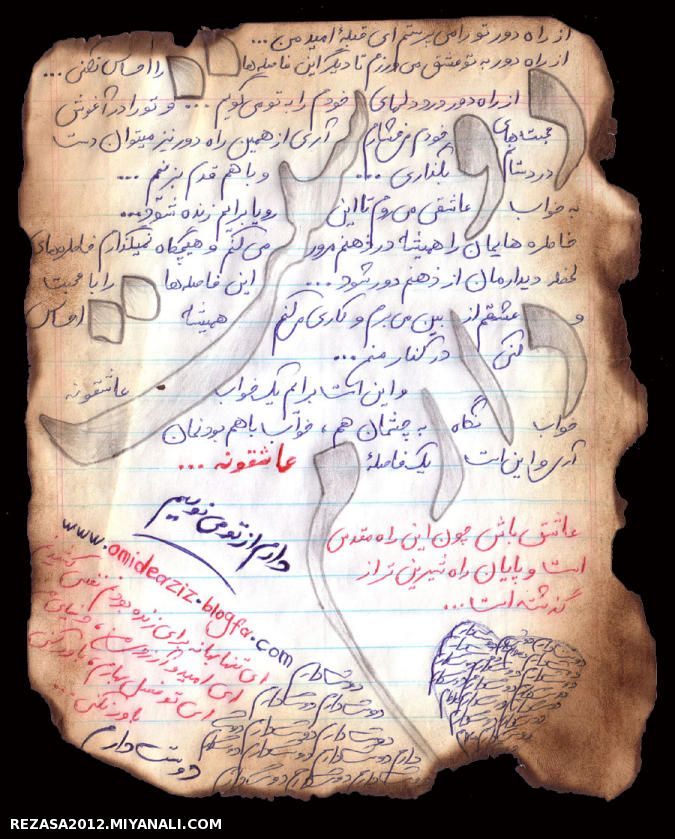 از راه دور تو را می پرستم ای قبلهٔ امید من ...
از راه دور به تو عشق می ورزم تا دیگر این فاصله‌ها را احساس نکنی ...
از راه دور درد دلهای خودم را به تو می گویم ... و تو را در آغوش
محبت‌های خودم می فشارم آری از همین راه دور نیز میتوان دست
در دستانم بگذاری ... و با هم قدم بزنیم ...
به خواب عاشقی می روم تا این رویا برایم زنده شود...
خاطره هایمان را همیشه در ذهنم مرور می کنم و هیچگاه نمیگذارم خاطره‌های
لحظه دیدارمان از ذهنم دور شود ... این فاصله‌ها را با محبت
و عشقم از بین می برم و کاری می کنم همیشه احساس
کنی در کنار منی ...
و این است برایم یک خواب عاشقونه
خواب نگاه به چشمان هم ، خواب با هم بودنمان
آری و این است یک فاصلهٔ عاشقونه ...
دارم از تو می نویسم
عاشق باش چون این راه مقدس
است و پایان راه شیرین تر از
گذشته است...
www.omideaziz.blogfa.com
ای تنها بهانه برای زنده بودنم نفس کشیدنم
ای امید و آرزوی من
ای تو فصل بهارم، باور کن
باور نکنی ...
دوستت دارم
دوستت دارم
دوستت دارم دوستت دارم
دوستت دارم دوستت دارم
REZASA2012.MIYANALI.COM